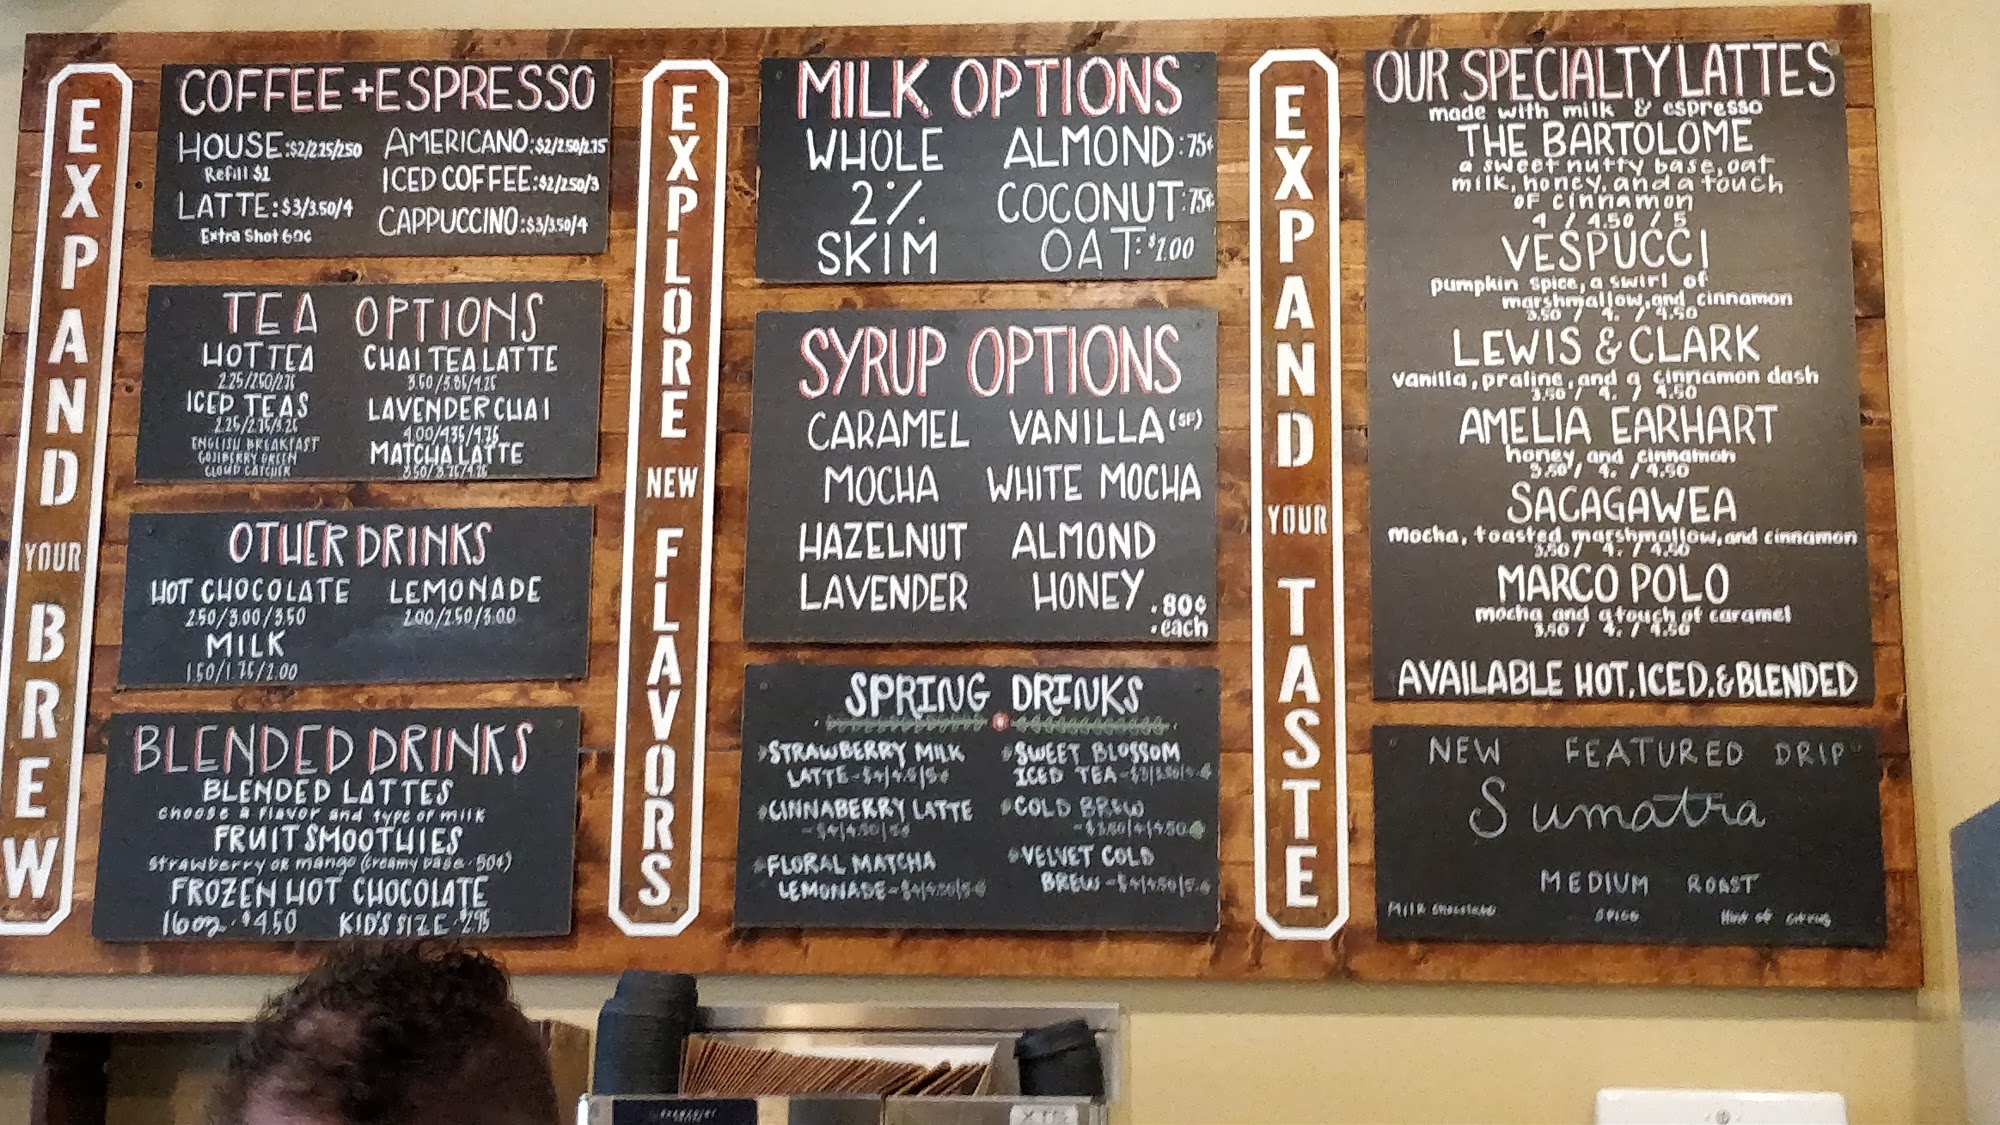 EXPAND YOUR BREW
COFFEE + ESPRESSO
HOUSE: $2/2.25/2.50
Refill $1
LATTE: $3/3.50/4
Extra Shot 60¢
AMERICANO: $2/2.50/2.75
ICED COFFEE: $2/2.50/3
CAPPUCCINO: $3/3.50/4
TEA OPTIONS
HOT TEA
2.25/2.50/2.75
ICED TEAS
2.25/2.75/3.25
ENGLISH BREAKFAST
GOJIBERRY GREEN
CLOUD CATCHER
CHAI TEA LATTE
3.50/3.85/4.25
LAVENDER CHAI
4.00/4.35/4.75
MATCHA LATTE
3.50/3.75/4.25
OTHER DRINKS
HOT CHOCOLATE
2.50/3.00/3.50
MILK
1.50/1.75/2.00
LEMONADE
2.00/2.50/3.00
BLENDED DRINKS
BLENDED LATTES
choose a flavor and type of milk
FRUIT SMOOTHIES
strawberry or mango (creamy base · 50¢)
FROZEN HOT CHOCOLATE
16oz · $4.50 KID'S SIZE · $2.95
EXPLORE NEW FLAVORS
MILK OPTIONS
WHOLE
2%
SKIM
ALMOND: 75¢
COCONUT: 75¢
OAT: $1.00
SYRUP OPTIONS
CARAMEL VANILLA (SF)
MOCHA WHITE MOCHA
HAZELNUT ALMOND
LAVENDER HONEY
.80¢
each
SPRING DRINKS
STRAWBERRY MILK
LATTE - $4/4.5/5
CINNABERRY LATTE
- $4/4.50/5
FLORAL MATCHA
LEMONADE - $4/4.50/5
SWEET BLOSSOM
ICED TEA
COLD BREW
- $3.50/4/4.50
VELVET COLD
BREW - $4/4.50/5
EXPAND YOUR TASTE
OUR SPECIALTY LATTES
made with milk & espresso
THE BARTOLOME
a sweet nutty base, oat
milk, honey, and a touch
of cinnamon
4 / 4.50 / 5
VESPUCCI
pumpkin spice, a swirl of
marshmallow, and cinnamon
3.50 / 4. / 4.50
LEWIS & CLARK
vanilla, praline, and a cinnamon dash
3.50 / 4. / 4.50
AMELIA EARHART
honey and cinnamon
3.50 / 4. / 4.50
SACAGAWEA
mocha, toasted marshmallow, and cinnamon
3.50 / 4. / 4.50
MARCO POLO
mocha and a touch of caramel
3.50 / 4. / 4.50
AVAILABLE HOT, ICED, & BLENDED
NEW FEATURED DRIP
Sumatra
MEDIUM ROAST
Milk chocolate spice Hint of citrus